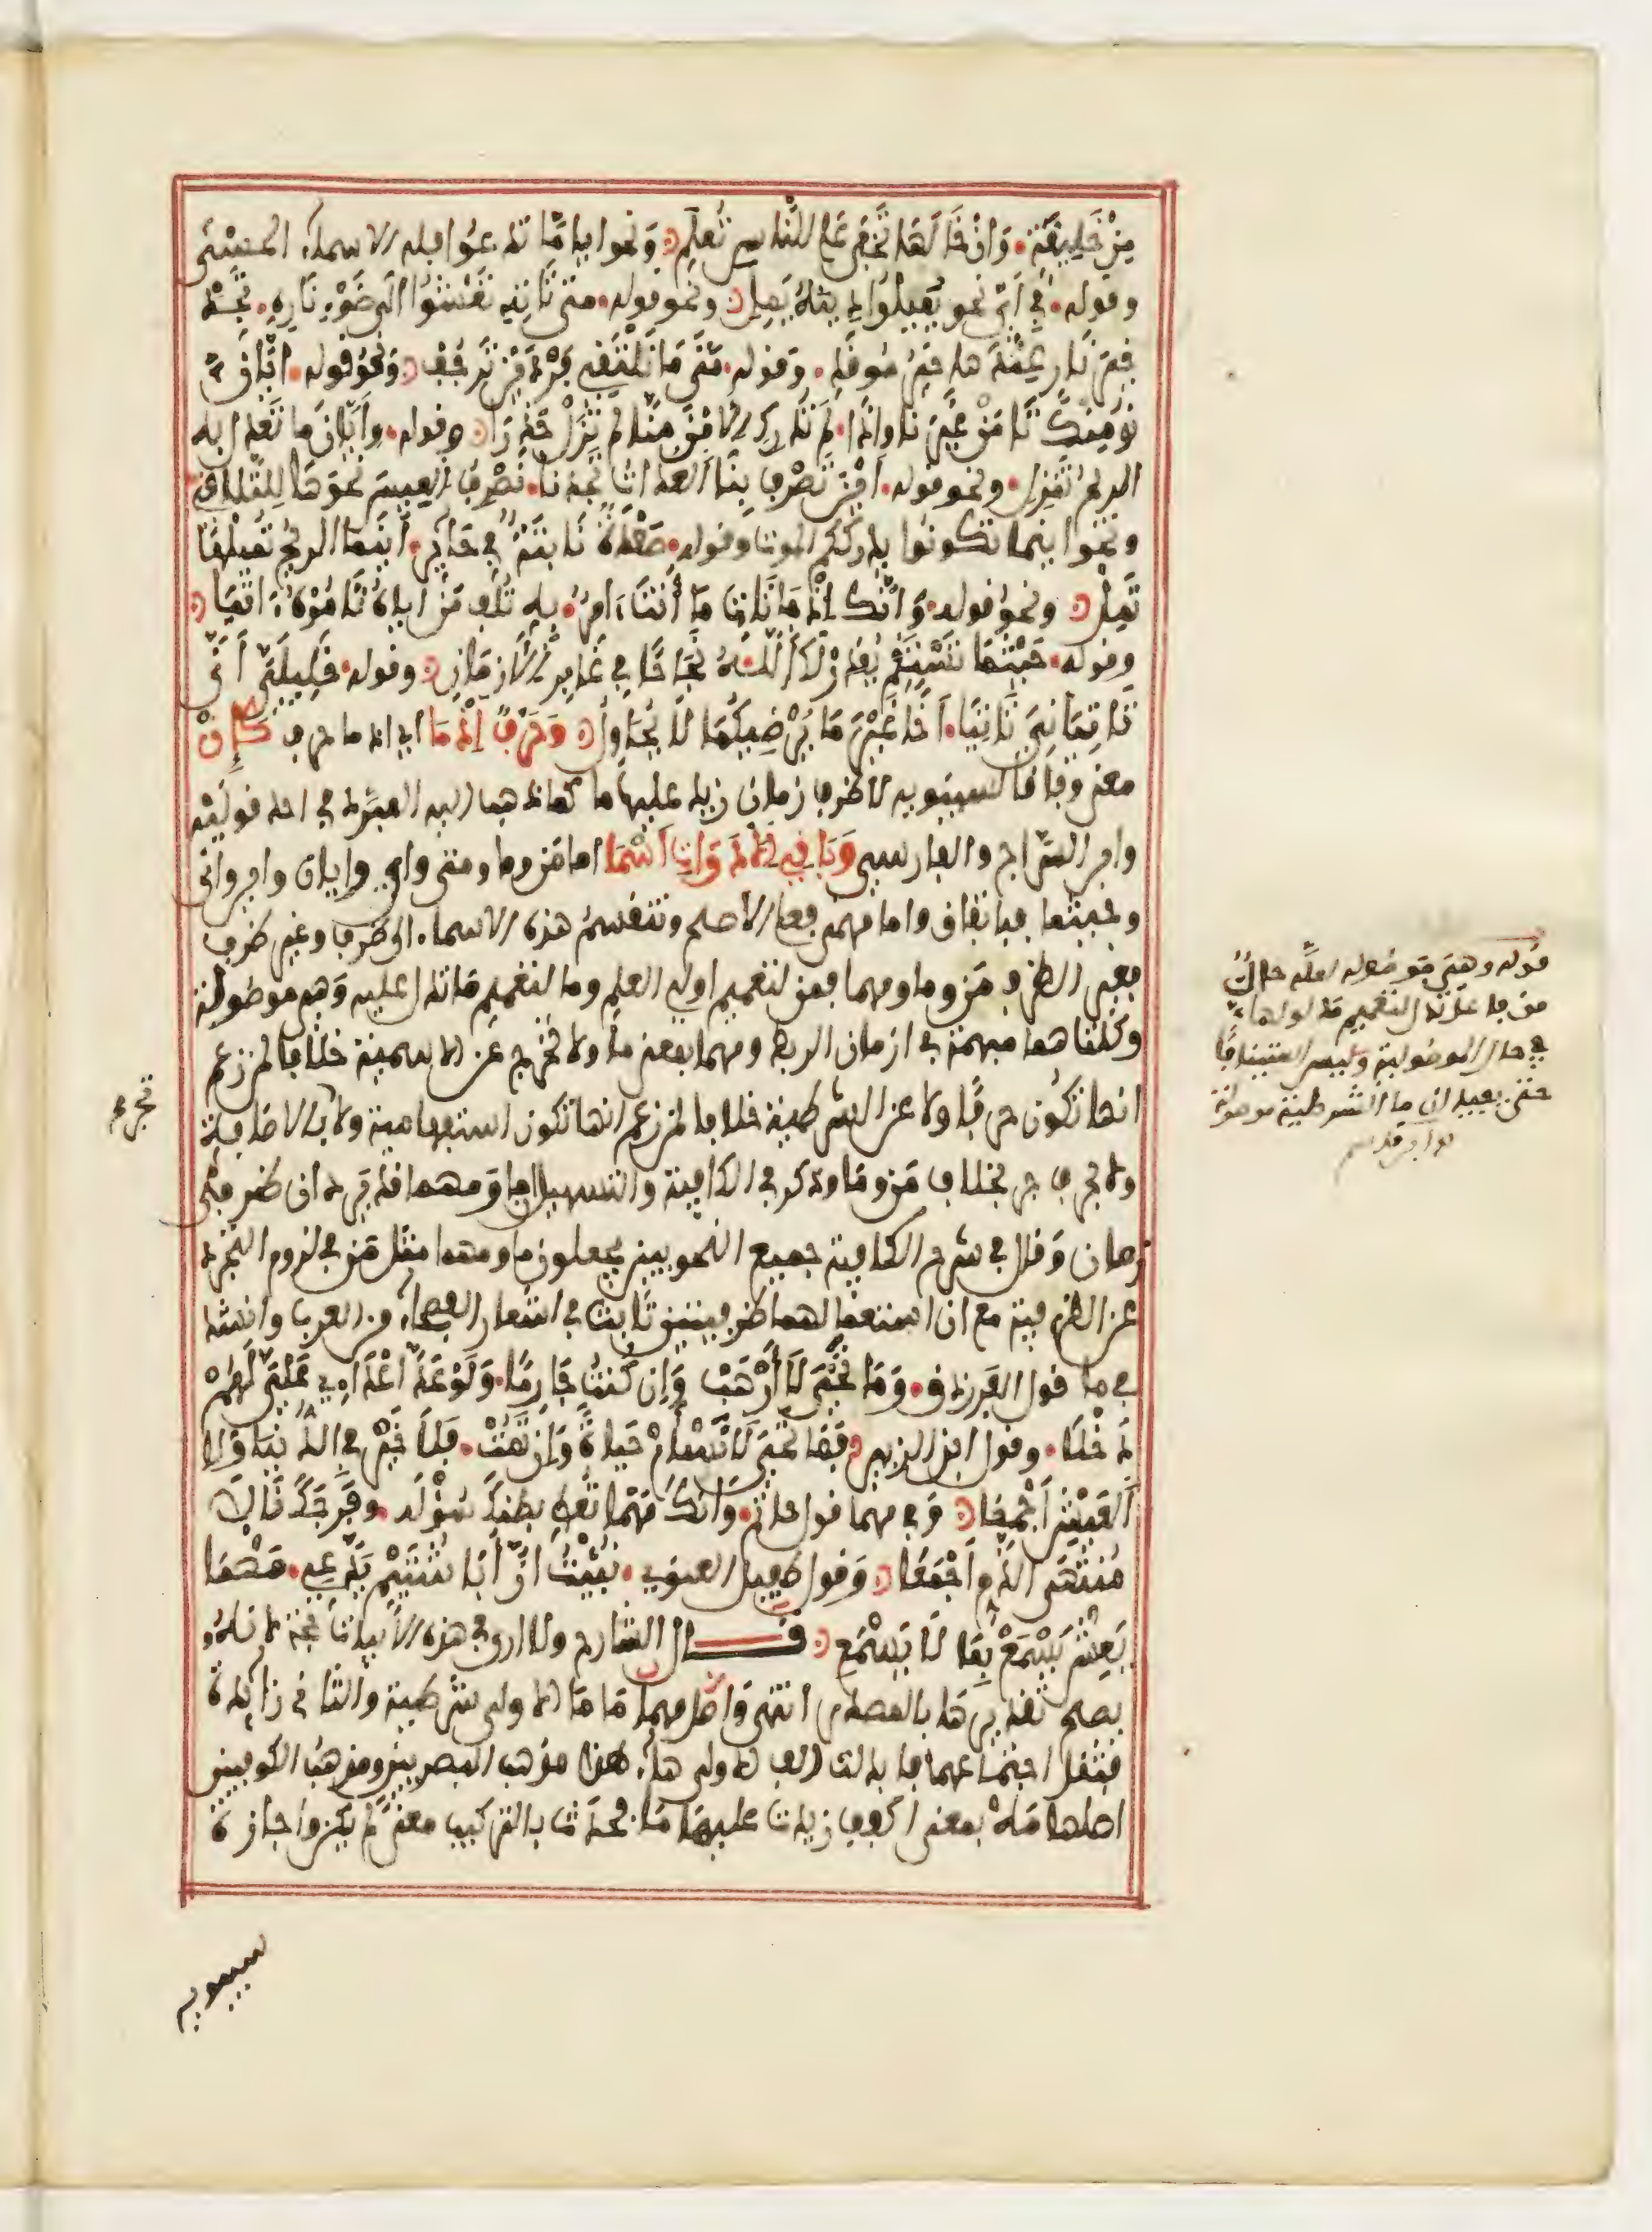 مِنْ خَلِيقَةٍ وَإنْ خَالَهَا تَخْفَى عَلَى النَّاسِ تُعْلَمِ ونحو أيا مّا تدعوا فله الاسماء الحسنى
وقوله في أيّ نحو يميلوا دينه يمل ونحو قوله متى تأته تعشوا الى ضوء ناره تجد
خير نار عندها خير موقد وقوله متى ما تلقني فردين ترجف ونحو قوله أيّان
نومنك تامن غيرنا واذا لم تدرك الامن منا لم تزل حذرا وقوله وأيّان ما تعدل به
الريح تنزل ونحو قوله اين تصرف بنا العداة تجدنا نصرف العيس نحوها للتلاقي
ونحو اينما تكونوا يدرككم الموت وقوله صعدة نابتة في حائر أينما الريح تميلها
تمل ونحو قوله وانك اذ ما تات ما أنت ءامر به تلف من اياه تامر ءاتيا
وقوله حيثما تستقم يقدر لك اللـه نجاحا في غابر الازمان وقوله خليليّ أنّى
تاتياني تاتيا أخا غير ما يرضيكما لا يحاول وحرفٌ إذْمَا اي اذ ما حرف كَإِنْ
معنى وفاقا لسيبويه لا ظرف زمان زيد عليها ما كما ذهب اليه المبرد في احد قوليه
وابن السّراج والفارسي وَبَاقِي الأَدَوَاتِ أَسْمَا اما من وما ومتى واي وايان واين وانى
وحيثما فباتفاق واما مهما فعلى الاصح وتنقسم هذه الاسماء الى ظرف وغير ظرف
فغير الظرف من وما ومهما فمن لتعميم اولي العلم وما لتعميم ما تدل عليه وهي موصولة
وكلتاهما مبهمة في ازمان الربط ومهما بمعنى ما ولا تخرج عن الاسمية خلافا لمن زعم
انها تكون حرفا ولا عن الشرطية خلافا لمن زعم انها تكون استفهامية ولا تجر بالاضافة
ولا بحرف جر بخلاف من وما وذكر في الكافية والتسهيل ان ما ومهما قد يردان ظرفي
زمان وقال في شرح الكافية جميع النحويين يجعلون ما ومهما مثل من في لزوم التجرد
عن الظرفية مع ان استعمالهما ظرفيتين ثابت في اشعار الفصحاء من العرب وانشد
في ما قول الفرزدق وما تحي لا أرهب وإن كنت جارما ولو عدّ أعداءي علي لهم
ذحلا وقول ابن الزبير فما تحي لا تسام حياة وإن تمت فلا خير في الدنيا ولا
العيش أجمعا وفي مهما قول حاتم وانك مهما تعط بطنك سؤله وفرجك نالا
منتهى الذم أجمعا وقول طفيل الغنوي نبئت أن أبا شتيم يدعي مهما
يعش يسمع بما لا يسمع قـــال الشارح ولا ارى في هذه الابيات حجة لانه
يصح تقديرها بالمصدر انتهى واصل مهما ما ما الاولى شرطية والثانية زائدة
فثقل اجتماعهما فابدلت الف الاولى هاء هذا مذهب البصريين ومذهب الكوفيين
اصلها مه بمعنى اكفف زيدت عليها ما فحدث بالتركيب معنى لم يكن واجازه
سيبويه
تجر صح
قوله وهي موصولة لعله حال
من فاعل تدل التعميم مدلولها
في حال الموصولية وليس استينافا
حتى يفيد ان ما الشرطية موصولة